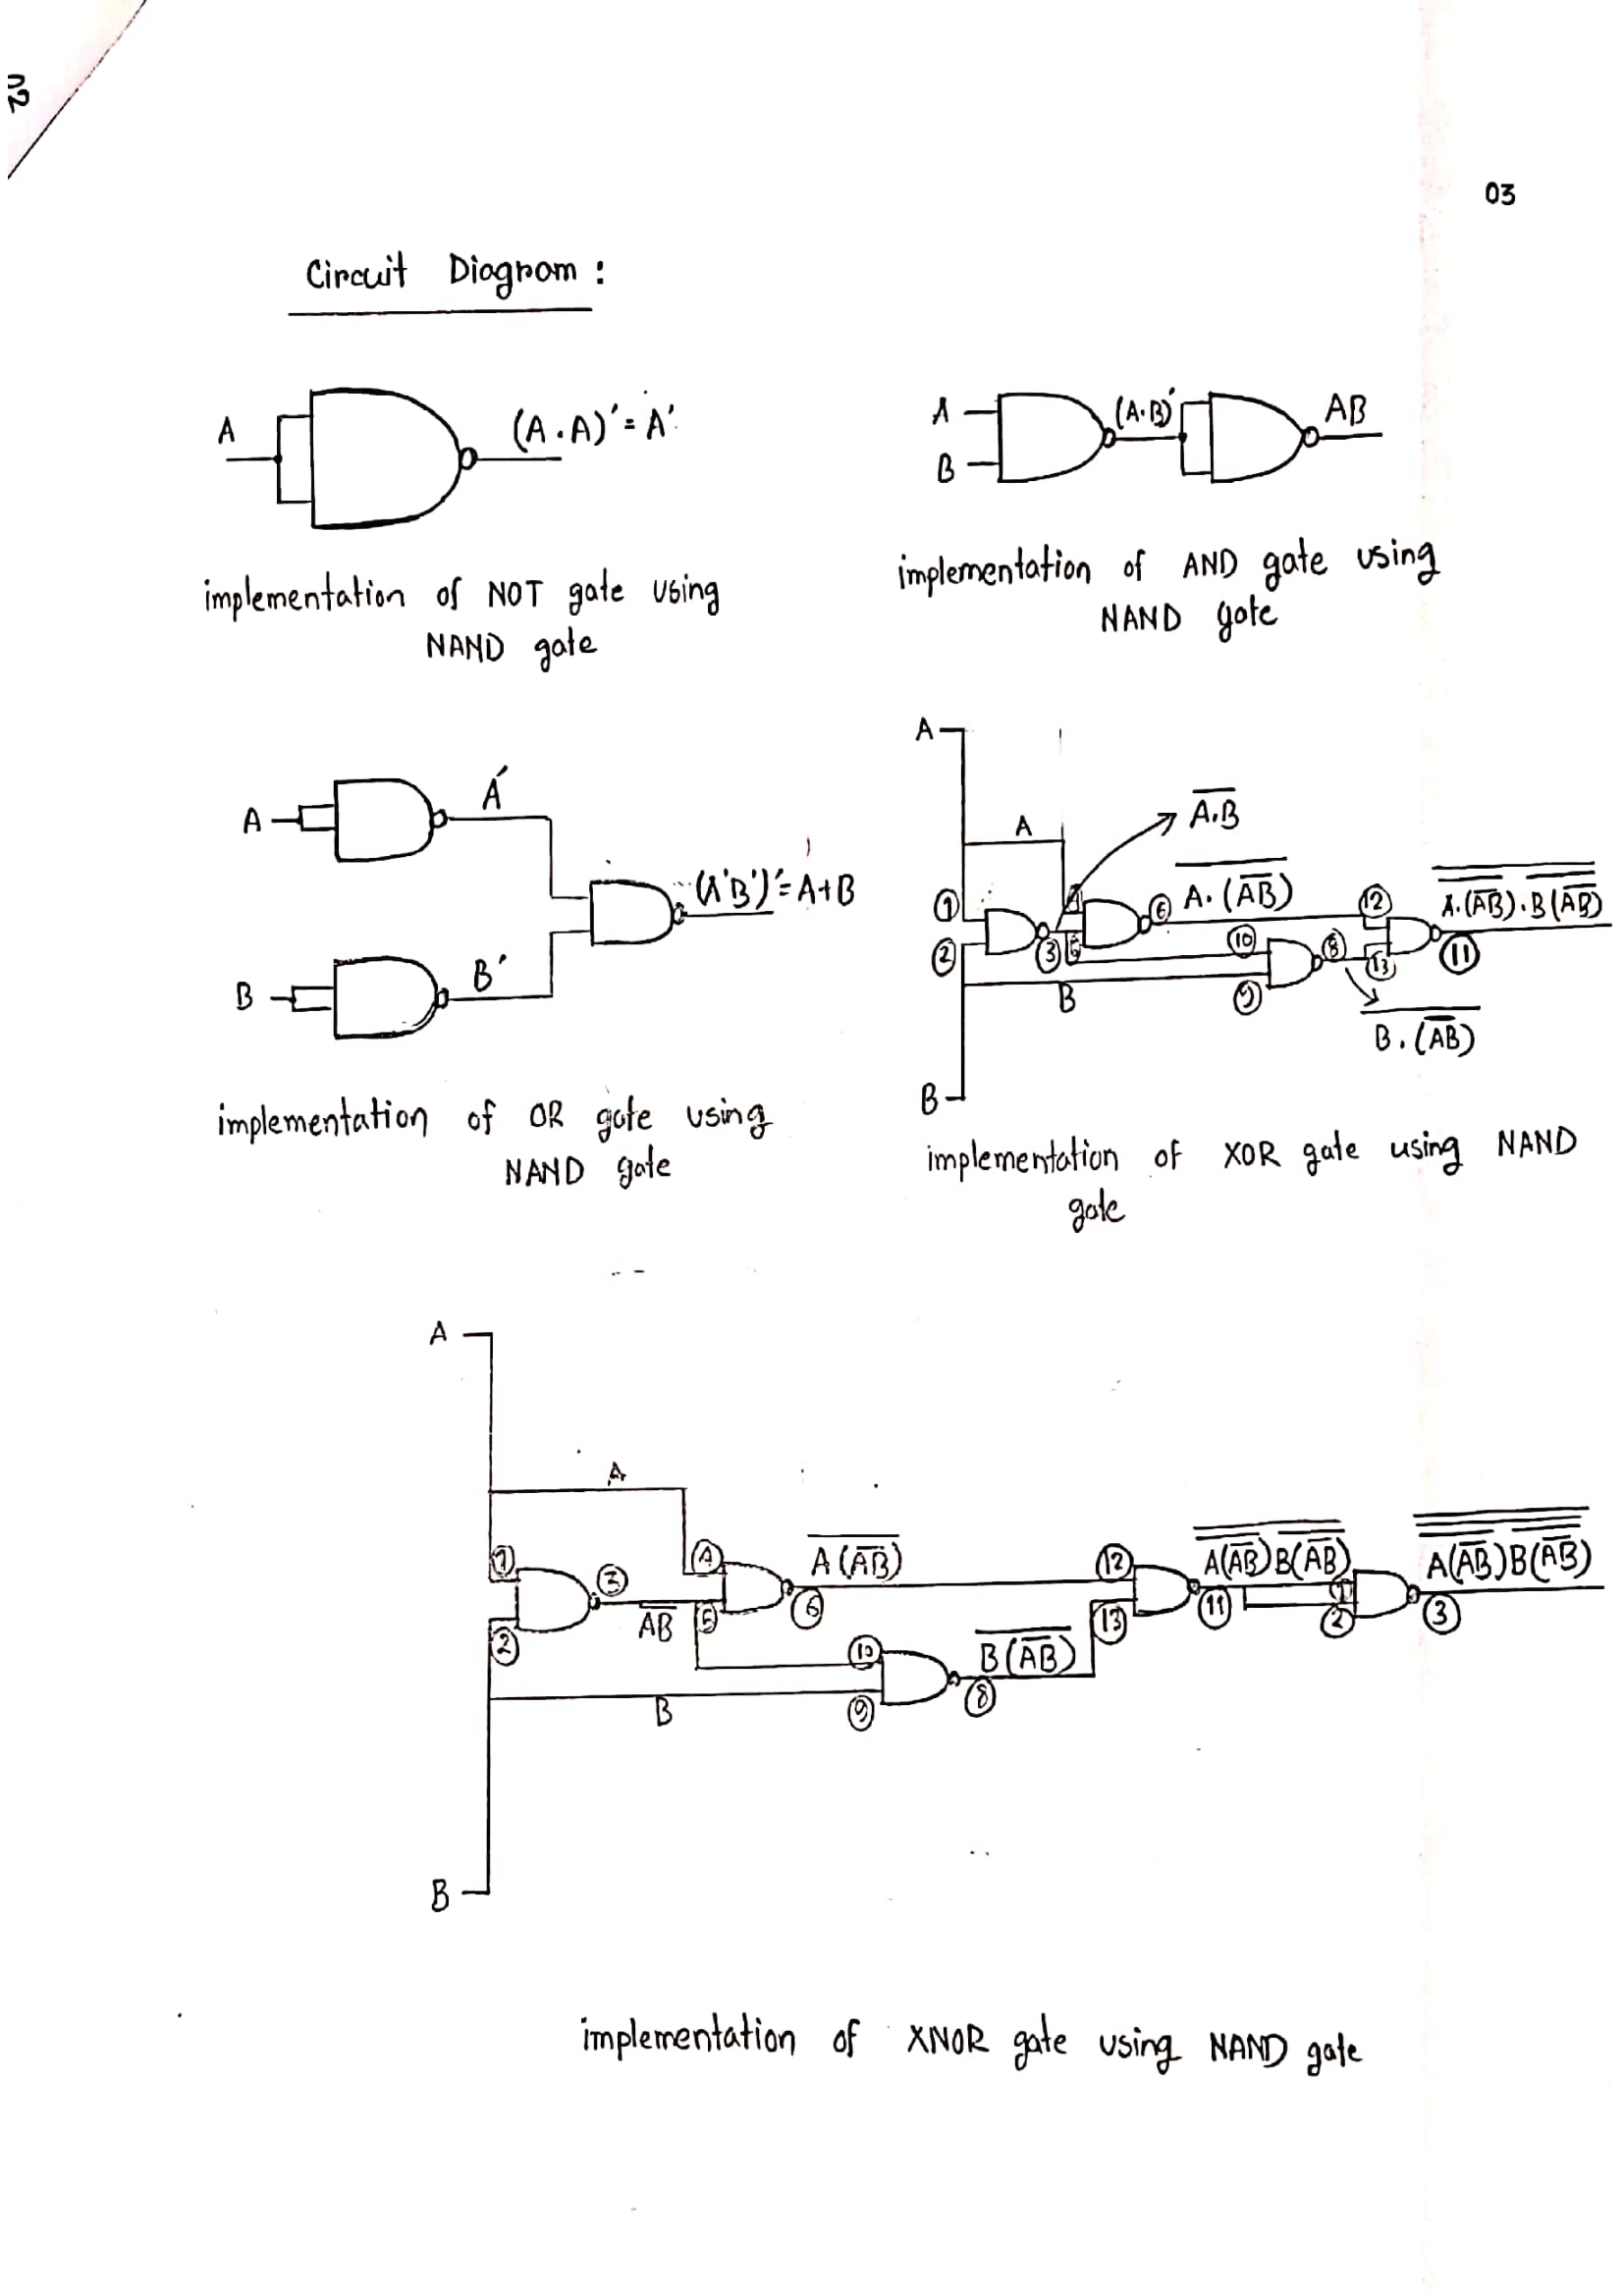 03
Circuit Diagram :
A
(A.A)' = A'
implementation of NOT gate using
NAND gate
A
B
(A.B)'
AB
implementation of AND gate using
NAND gate
A
A'
B
B'
(A'B')' = A+B
implementation of OR gate using
NAND gate
A
A
A̅.̅B̅
1
2
3
4
5
6
\overline{A.(\overline{AB})}
10
9
8
12
13
11
\overline{\overline{A.(\overline{AB})}.\overline{B(\overline{AB})}}
B
\overline{B.(\overline{AB})}
B
implementation of XOR gate using NAND
gate
A
A
1
2
3
\overline{AB}
4
5
6
\overline{A(\overline{AB})}
10
9
8
B
\overline{B(\overline{AB})}
12
13
11
\overline{\overline{A(\overline{AB})}\,\overline{B(\overline{AB})}}
1
2
3
\overline{\overline{\overline{A(\overline{AB})}\,\overline{B(\overline{AB})}}}
B
implementation of XNOR gate using NAND gate